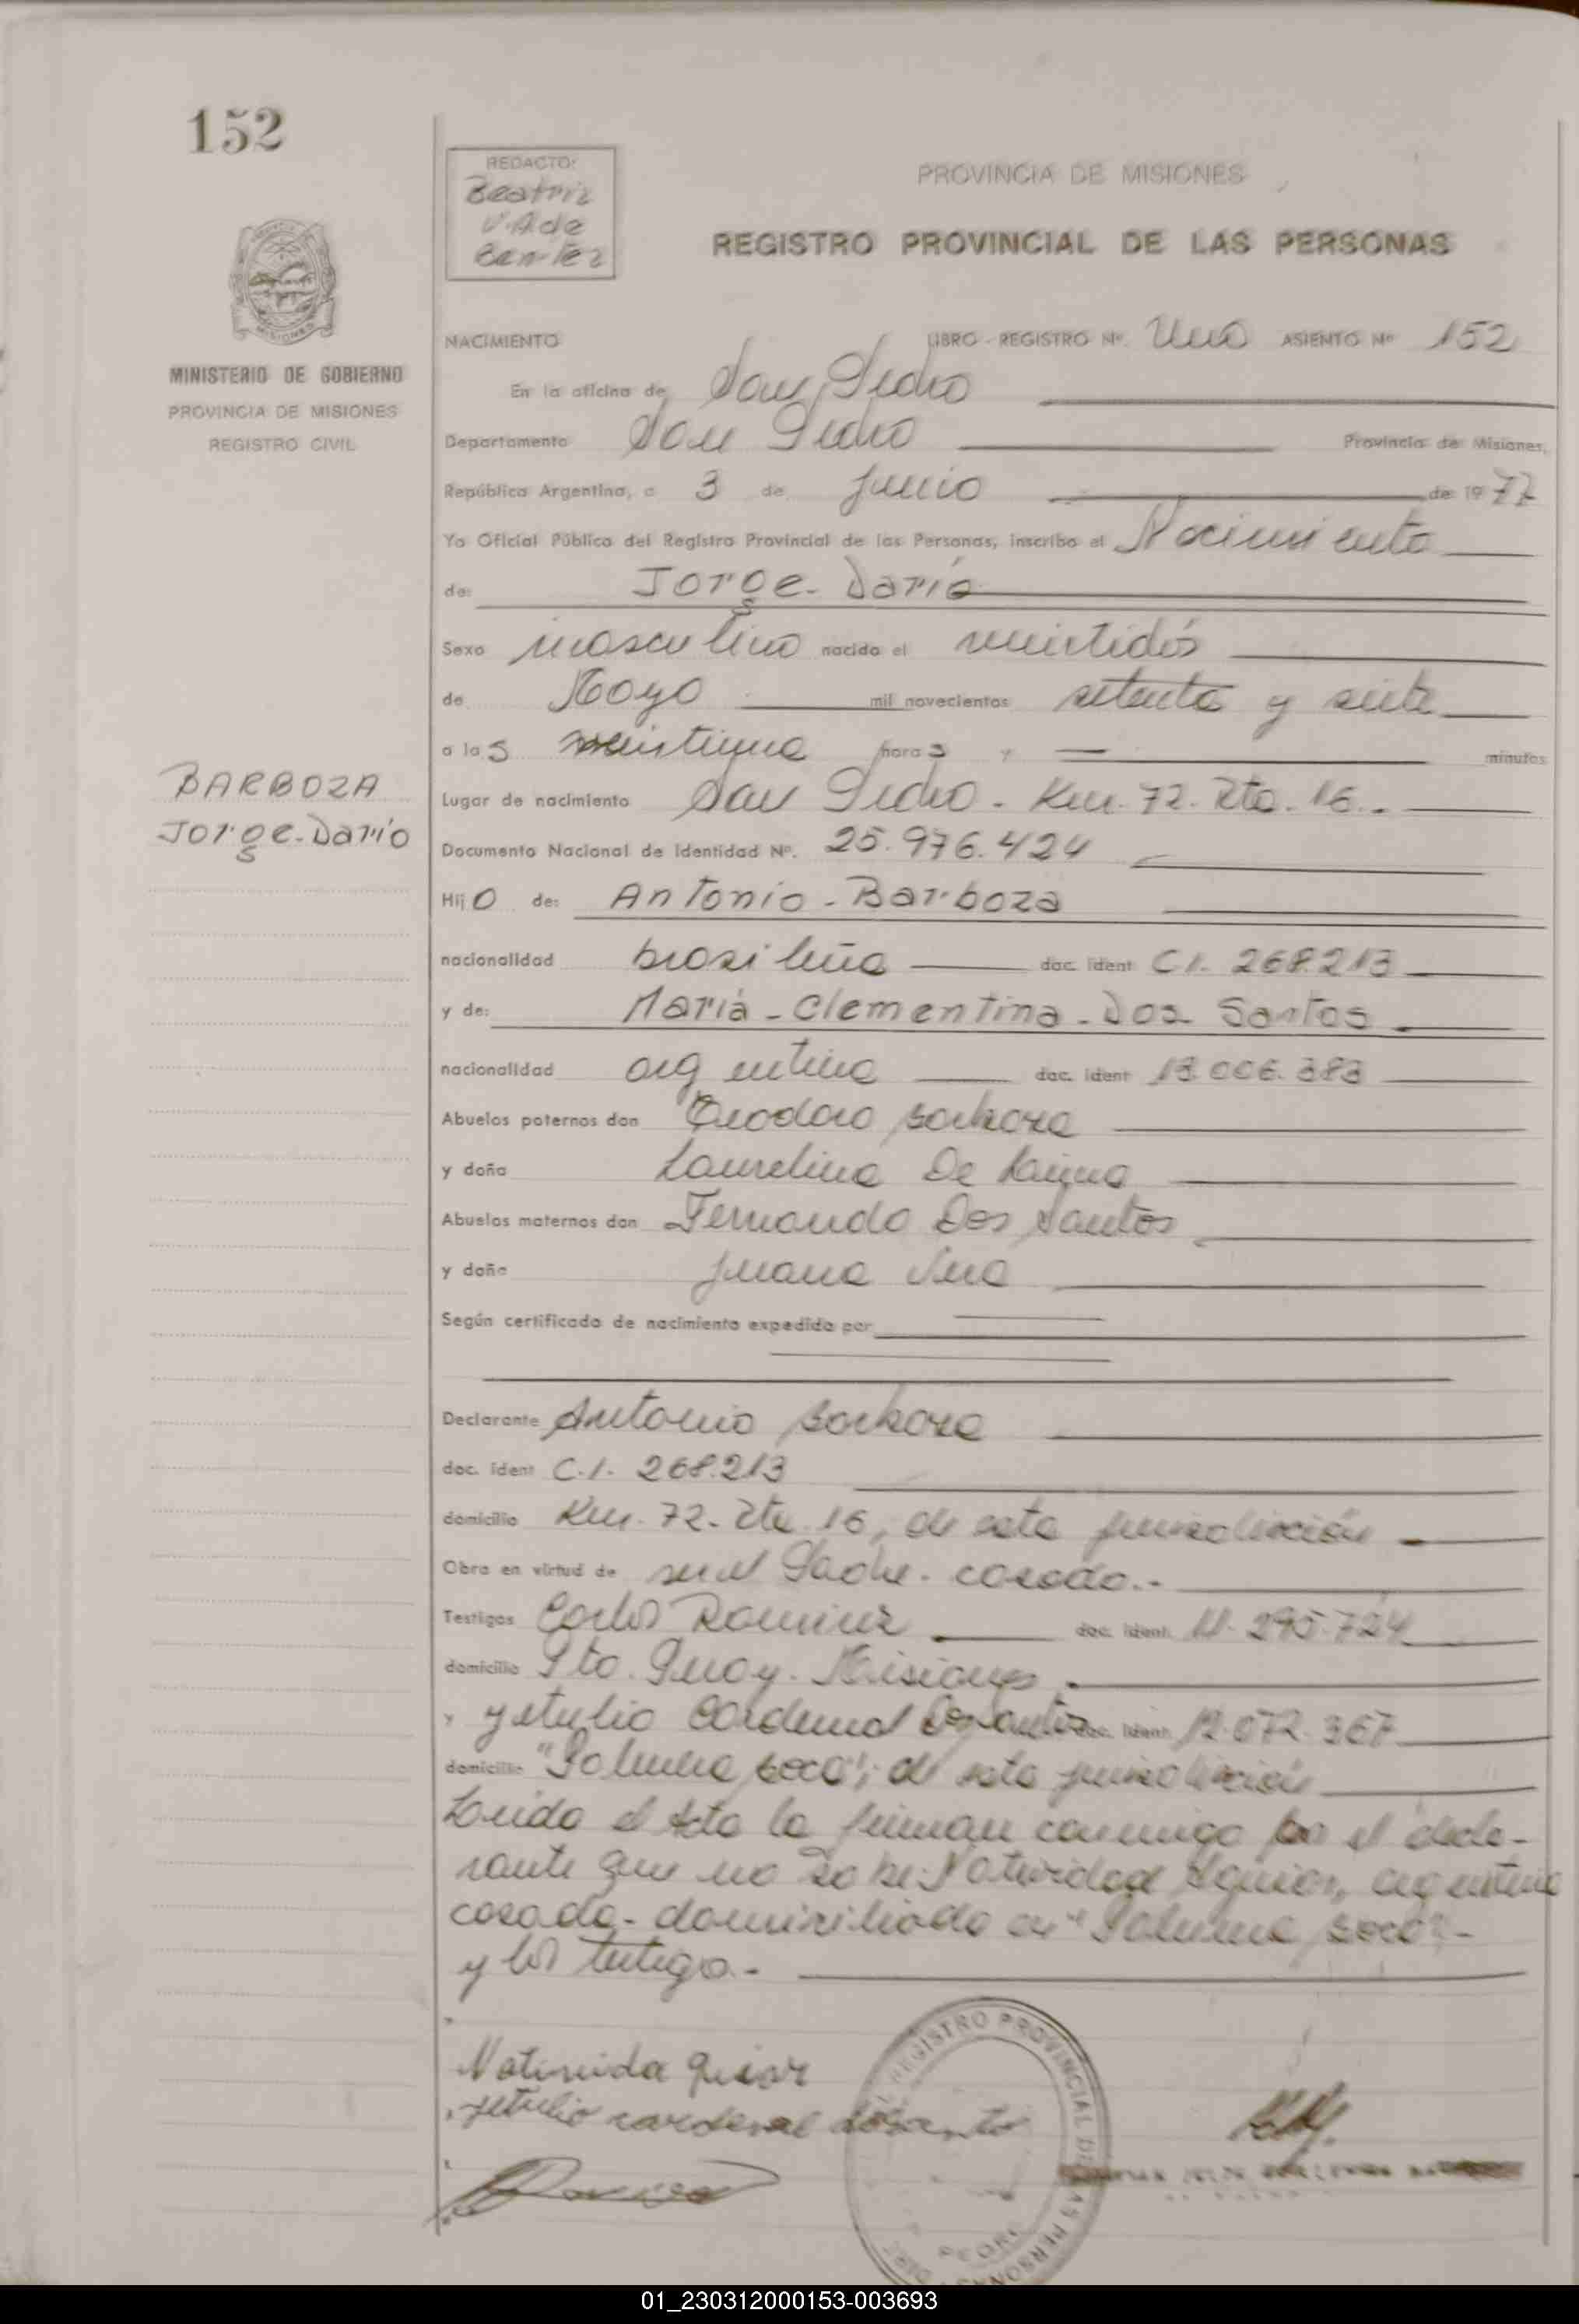 152
REDACTO:
Beatriz
V. A de
Benitez
PROVINCIA DE MISIONES
REGISTRO PROVINCIAL DE LAS PERSONAS
MISIONES
MINISTERIO DE GOBIERNO
PROVINCIA DE MISIONES
REGISTRO CIVIL
NACIMIENTO LIBRO - REGISTRO Nº. Uno ASIENTO Nº 152
En la oficina de San Pedro
Departamento San Pedro Provincia de Misiones,
República Argentina, a 3 de Junio de 1977
Yo Oficial Público del Registro Provincial de las Personas, inscribo el Nacimiento
de: Jorge - Darío
Sexo masculino nacido el veintidós
de Mayo mil novecientos setenta y siete
a las veintiuna horas y — minutos
BARBOZA
Jorge - Darío
Lugar de nacimiento San Pedro - Km. 72. Rta. 16.-
Documento Nacional de Identidad Nº. 25.976.424
Hijo de: Antonio - Barboza
nacionalidad brasileña doc. ident C.I. 268.213
y de: María - Clementina - Dos Santos
nacionalidad argentina doc. ident 13.006.383
Abuelos paternos don Teodoro Barboza
y doña Laurelina De
Abuelos maternos don Fernando Dos Santos
y doña Juana
Según certificado de nacimiento expedido por
Declarante Antonio Barboza
doc. ident C.I. 268.213
domicilio Km. 72 - Rta. 16, de esta jurisdicción
Obra en virtud de ser el Padre - casado.-
Testigos Carlos Ramirez doc. ident. 11.295.724
domicilio Pto. Misiones
y Getulio Cardenal Dos Santos doc. ident. 12.072.367
domicilio "Palmera Boca"; de esta jurisdicción
Leída el Acta la firman conmigo por el decla-
rante que no sabe: Natividad argentino
casado - domiciliado en "Palmera Boca" -
y los testigos.-
REGISTRO PROVINCIAL DE LAS PERSONAS
getulio cardenal dosantos
01_230312000153-003693